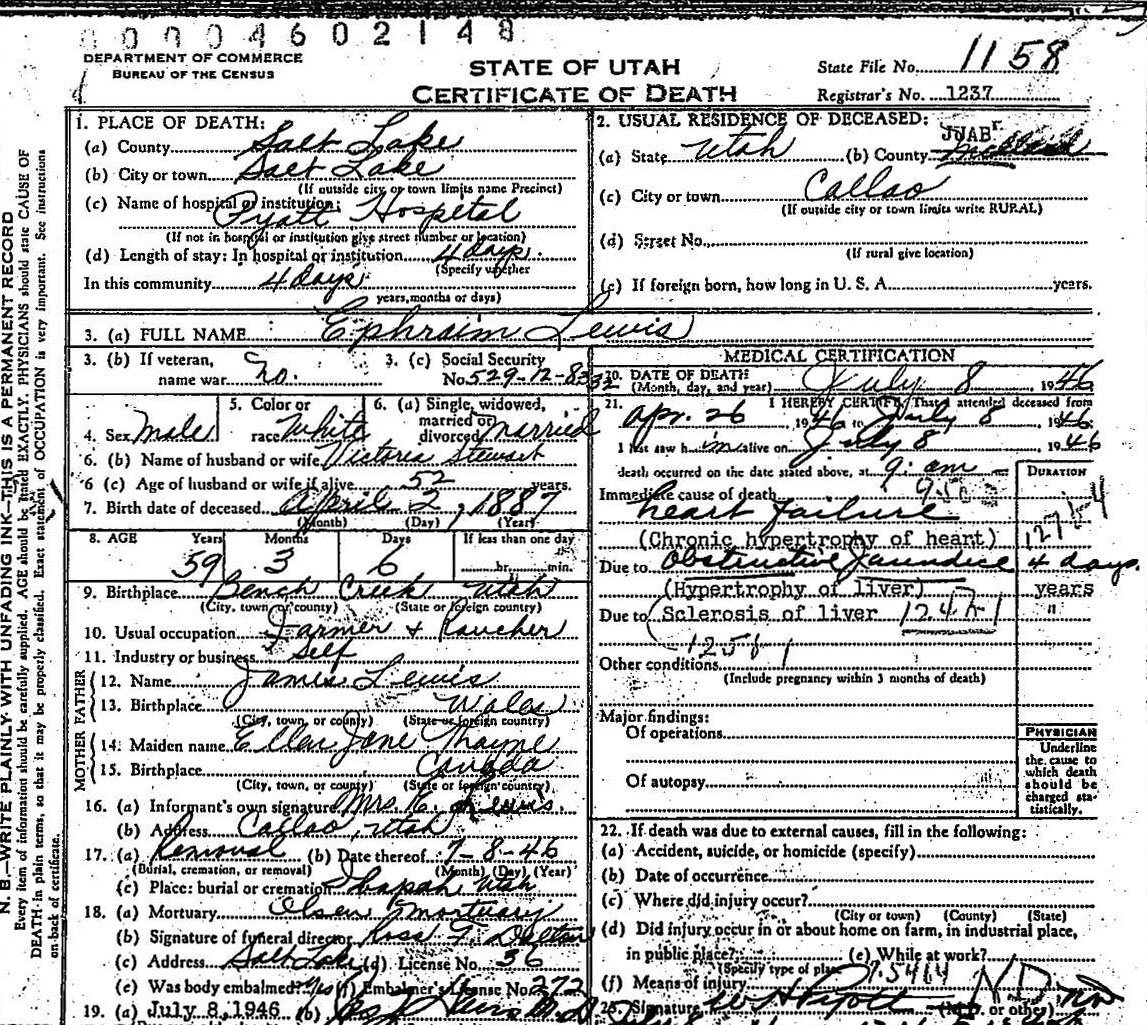 00004602148
DEPARTMENT OF COMMERCE
BUREAU OF THE CENSUS
STATE OF UTAH
CERTIFICATE OF DEATH
State File No. 1158
Registrar's No. 1237
N. B.—WRITE PLAINLY WITH UNFADING INK—THIS IS A PERMANENT RECORD
Every item of information should be carefully supplied. AGE should be stated EXACTLY. PHYSICIANS should state CAUSE OF
DEATH in plain terms, so that it may be properly classified. Exact statement of OCCUPATION is very important. See instructions
on back of certificate.
1. PLACE OF DEATH:
(a) County Salt Lake
(b) City or town Salt Lake
(If outside city or town limits name Precinct)
(c) Name of hospital or institution:
Pyott Hospital
(If not in hospital or institution give street number or location)
(d) Length of stay: In hospital or institution 4 days.
(Specify whether
In this community 4 days
years, months or days)
2. USUAL RESIDENCE OF DECEASED:
JUAB
(a) State Utah (b) County Millard
(c) City or town Callao
(If outside city or town limits write RURAL)
(d) Street No.
(If rural give location)
(e) If foreign born, how long in U. S. A. years.
3. (a) FULL NAME Ephraim Lewis
3. (b) If veteran, name war No.
3. (c) Social Security No. 529-12-8332
4. Sex Male
5. Color or race White
6. (a) Single, widowed, married or divorced married
6. (b) Name of husband or wife Victoria Stewart
6 (c) Age of husband or wife if alive 52 years.
7. Birth date of deceased April 2, 1887
(Month) (Day) (Year)
8. AGE Years Months Days If less than one day
59 3 6 hr. min.
9. Birthplace Bench Creek Utah
(City, town, or county) (State or foreign country)
10. Usual occupation Farmer & Rancher
11. Industry or business Self
FATHER
12. Name James Lewis
13. Birthplace Wales
(City, town, or county) (State or foreign country)
MOTHER
14. Maiden name Ellen Jane Thayne
15. Birthplace Canada
(City, town, or county) (State or foreign country)
16. (a) Informant's own signature Mrs. E. Lewis.
(b) Address Callao, Utah
17. (a) Removal (b) Date thereof 7-8-46
(Burial, cremation, or removal) (Month) (Day) (Year)
(c) Place: burial or cremation Ibapah Utah
18. (a) Mortuary Olsen Mortuary
(b) Signature of funeral director Ross F. Dalton
(c) Address Salt Lake (d) License No. 36
(e) Was body embalmed? Yes (f) Embalmer's License No. 272
19. (a) July 8, 1946 (b)
MEDICAL CERTIFICATION
20. DATE OF DEATH
(Month, day, and year) July 8 1946
21. I HEREBY CERTIFY That I attended deceased from
Apr. 26, 1946 to July 8 1946
I last saw him alive on July 8 1946
death occurred on the date stated above, at 9: am
DURATION
Immediate cause of death
heart failure
(Chronic hypertrophy of heart)
Due to Obstructive Jaundice 4 days.
(Hypertrophy of liver) years
Due to (Sclerosis of liver "
Other conditions
(Include pregnancy within 3 months of death)
Major findings:
Of operations
Of autopsy
PHYSICIAN
Underline
the cause to
which death
should be
charged sta-
tistically.
22. If death was due to external causes, fill in the following:
(a) Accident, suicide, or homicide (specify)
(b) Date of occurrence
(c) Where did injury occur?
(City or town) (County) (State)
(d) Did injury occur in or about home on farm, in industrial place,
in public place? (e) While at work?
(Specify type of place)
(f) Means of injury
Signature W H Pyott (M. D. or other)